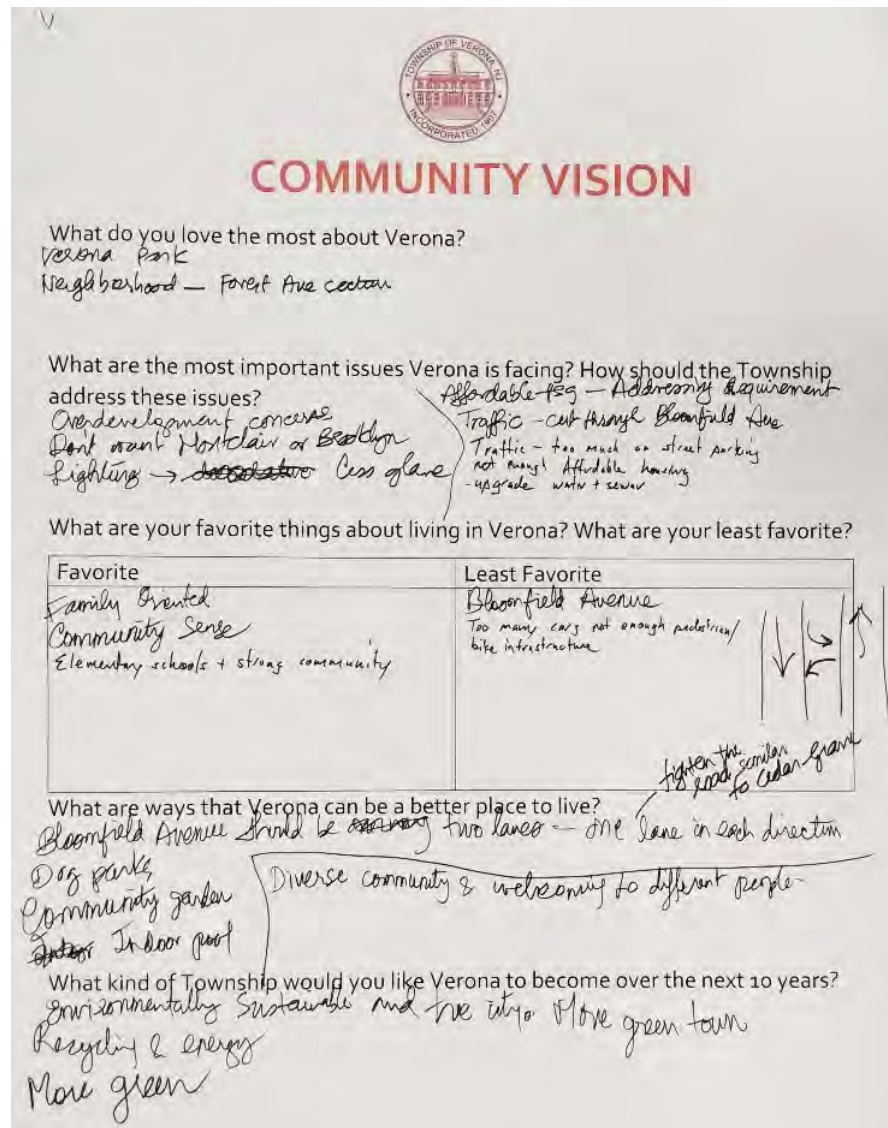 V
TOWNSHIP OF VERONA, NJ
INCORPORATED 1907
COMMUNITY VISION
What do you love the most about Verona?
Verona Park
Neighborhood — Forest Ave section
What are the most important issues Verona is facing? How should the Township
address these issues?
Overdevelopment concerns
Don't want Montclair or Brooklyn
Lighting → less glare
Affordable Hsg — Addressing Requirement
Traffic - cut through Bloomfield Ave
Traffic - too much on street parking
not enough Affordable housing
- upgrade water + sewer
What are your favorite things about living in Verona? What are your least favorite?
Favorite
Family Oriented
Community Sense
Elementary schools + strong community
Least Favorite
Bloomfield Avenue
Too many cars not enough pedestrian/
bike infrastructure
tighten the
road similar
to Cedar Grove
What are ways that Verona can be a better place to live?
Bloomfield Avenue should be two lanes - one lane in each direction
Dog parks
Community garden
Indoor pool
Diverse community & welcoming to different people
What kind of Township would you like Verona to become over the next 10 years?
Environmentally Sustainable and tree city. More green town
Recycling & energy
More green